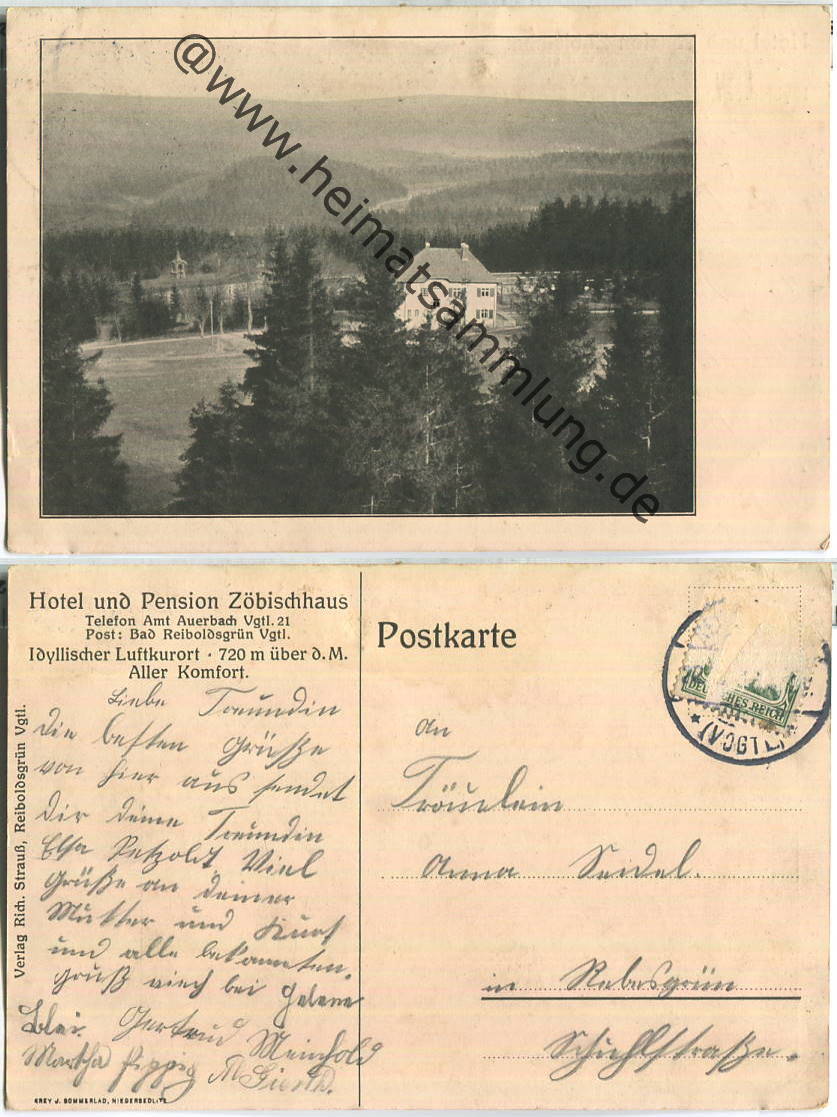 @www.heimatsammlung.de
Hotel und Pension Zöbischhaus
Telefon Amt Auerbach Vgtl. 21
Post: Bad Reiboldsgrün Vgtl.
Idyllischer Luftkurort · 720 m über d. M.
Aller Komfort.
Postkarte
DEUTSCHES REICH
* (VOGTL)
Verlag Rich. Strauß, Reiboldsgrün Vgtl.
Liebe Freundin
die besten Grüße
von hier aus sendet
dir deine Freundin
Elsa Petzold. Viel
Grüße an deiner
Mutter und Kurt
und alle bekannten.
gruß auch bei Helene
Gertrud Meinhold
Martha
An
Fräulein
Anna Seidel.
in Rebesgrün
Schuhlstraße.
GREY J. SOMMERLAD, NIEDERSEDLITZ